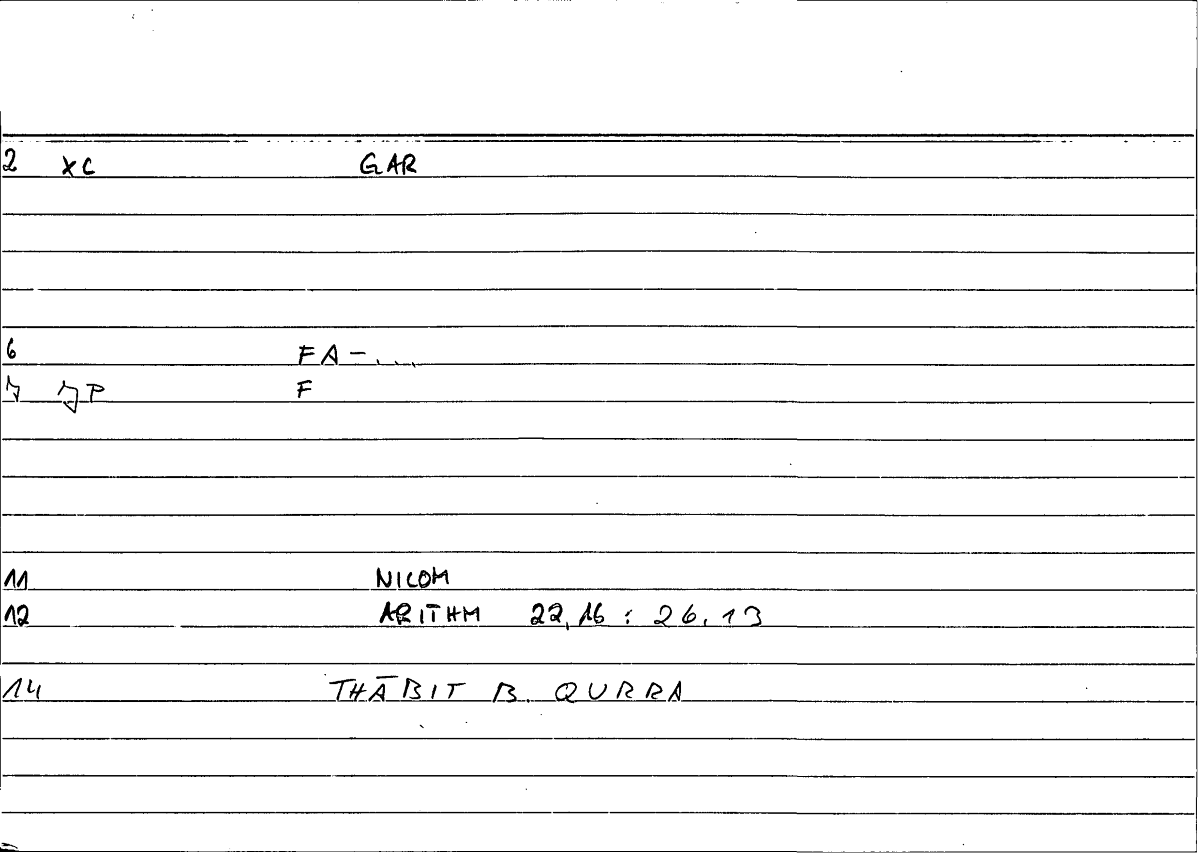 2 XC GAR
6 FA-....
7 7P F
11 NICOM
12 ARITHM 22,16 : 26.13
14 THĀBIT B. QURRA